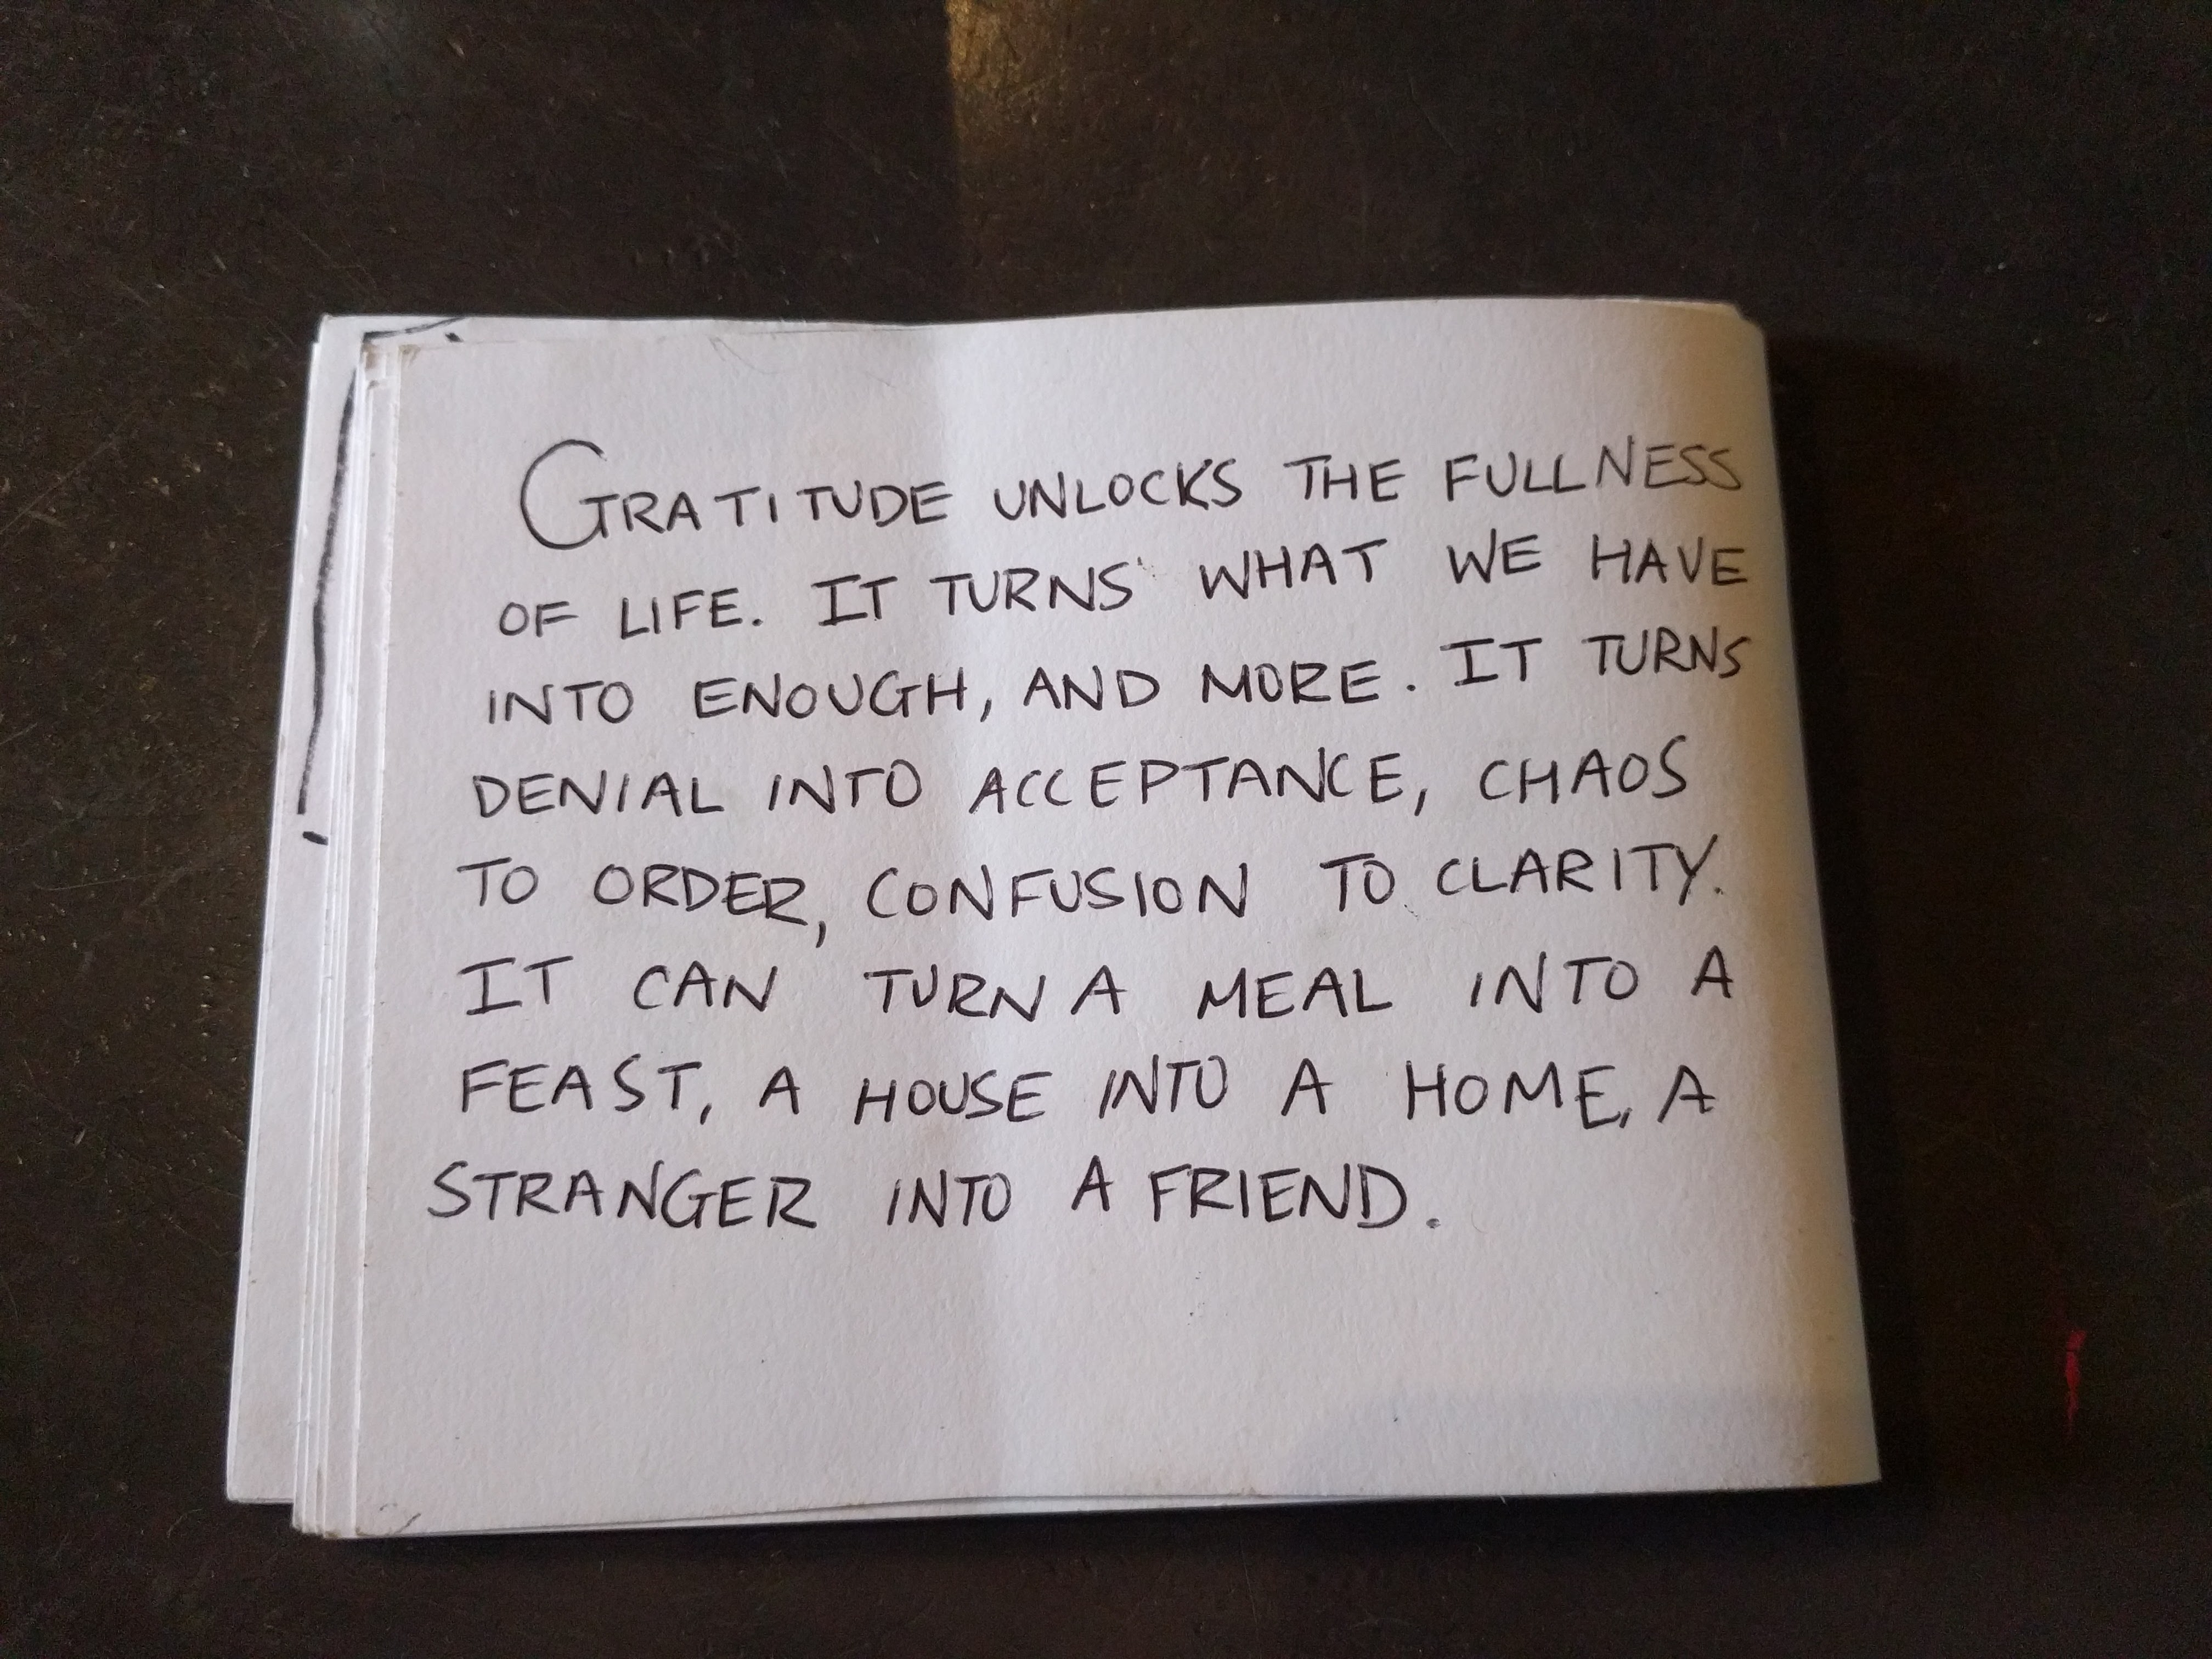 GRATITUDE UNLOCKS THE FULLNESS
OF LIFE. IT TURNS WHAT WE HAVE
INTO ENOUGH, AND MORE. IT TURNS
DENIAL INTO ACCEPTANCE, CHAOS
TO ORDER, CONFUSION TO CLARITY.
IT CAN TURN A MEAL INTO A
FEAST, A HOUSE INTO A HOME, A
STRANGER INTO A FRIEND.